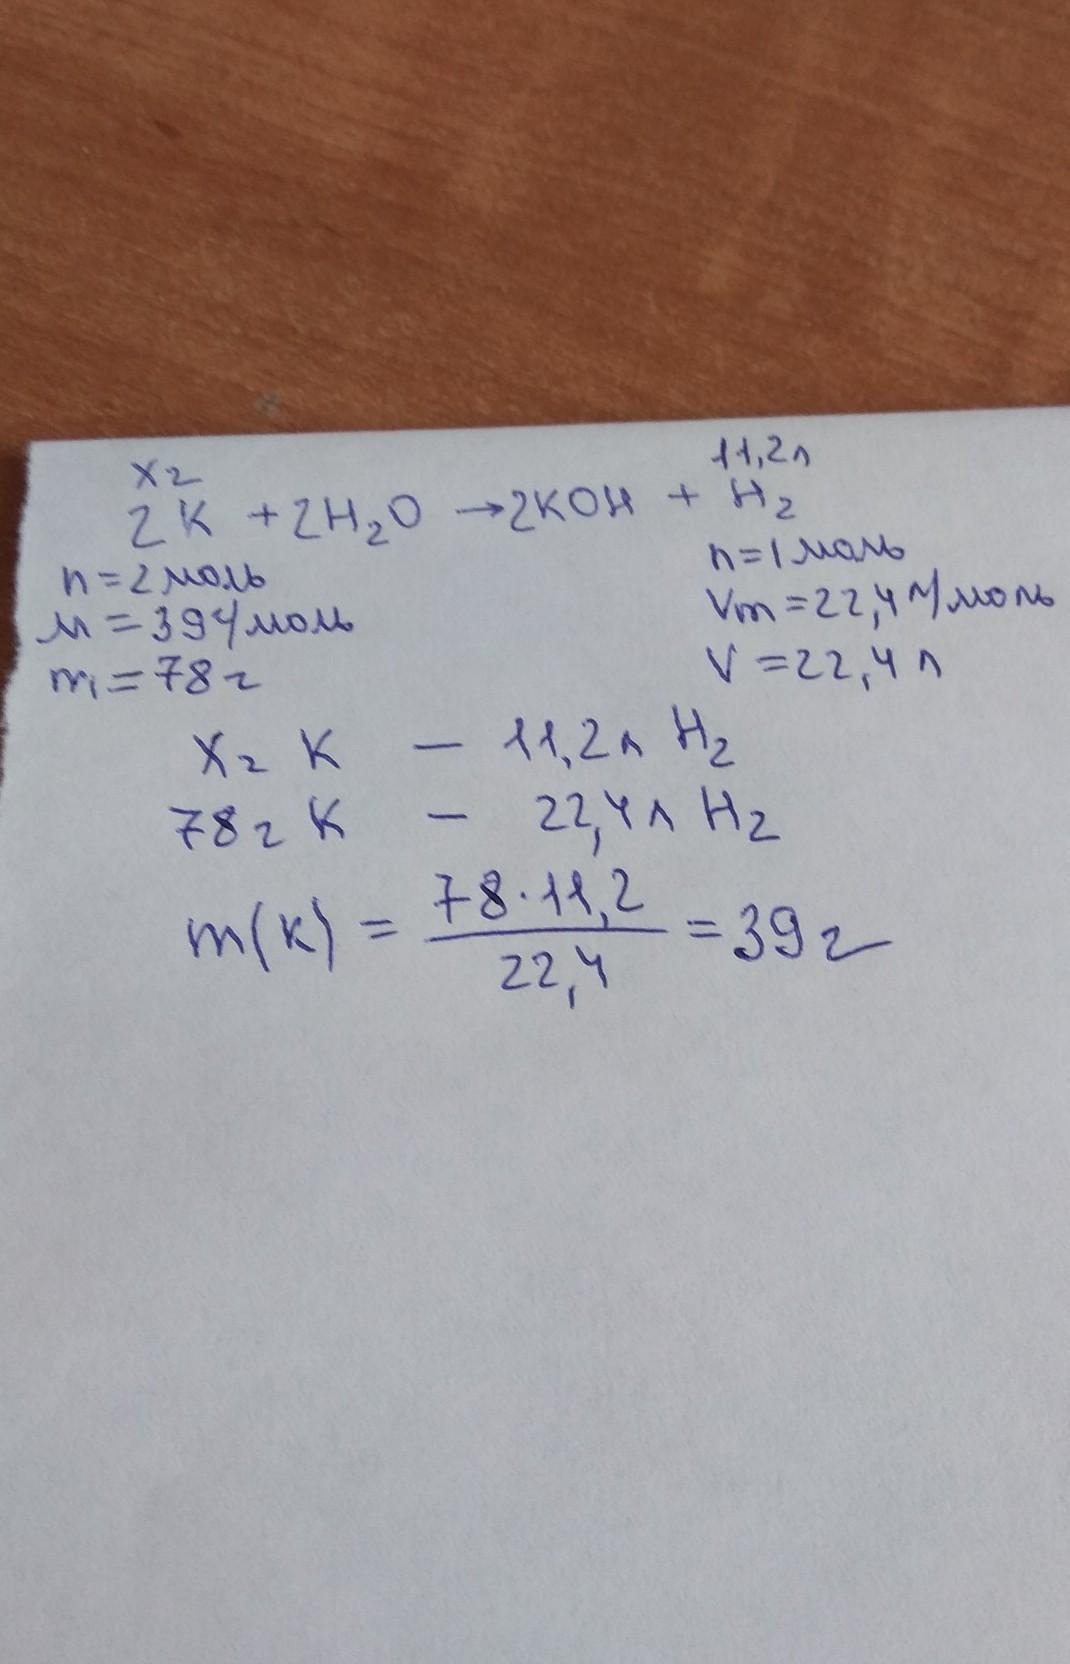 x г 11,2 л
2K + 2H₂O → 2KOH + H₂
n = 2 моль n = 1 моль
M = 39 г/моль Vm = 22,4 л/моль
m = 78 г V = 22,4 л
x г K — 11,2 л H₂
78 г K — 22,4 л H₂
m(K) = 78 · 11,2 / 22,4 = 39 г